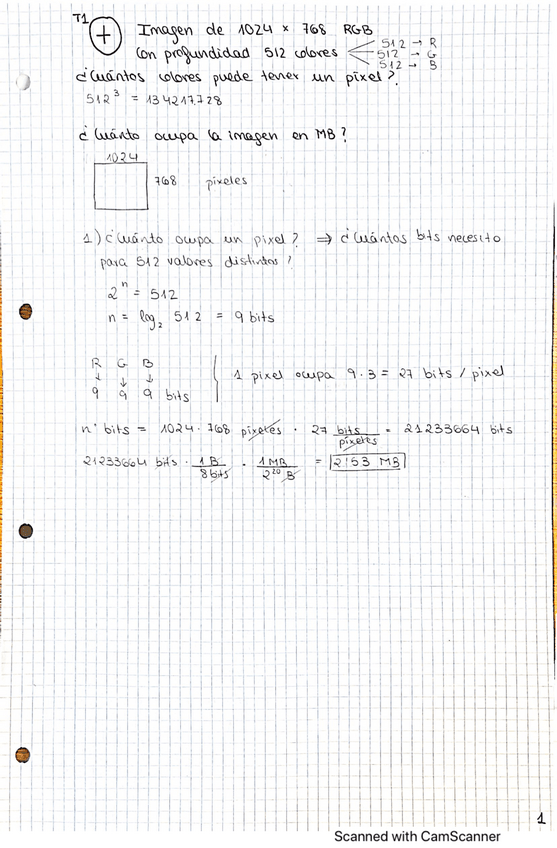 T1
+ Imagen de 1024 × 768 RGB
con profundidad 512 colores 512 → R
512 → G
512 → B
¿Cuántos colores puede tener un píxel?
512³ = 134217728
¿Cuánto ocupa la imagen en MB?
1024
768 píxeles
1) ¿Cuánto ocupa un pixel? ⇒ ¿Cuántos bits necesito
para 512 valores distintos?
2ⁿ = 512
n = log₂ 512 = 9 bits
R G B
↓ ↓ ↓
9 9 9 bits
1 pixel ocupa 9·3 = 27 bits / pixel
n° bits = 1024 · 768 píxeles · 27 bits/píxeles = 21233664 bits
21233664 bits · 1 B/8 bits · 1 MB/2²⁰ B = 2'53 MB
1
Scanned with CamScanner